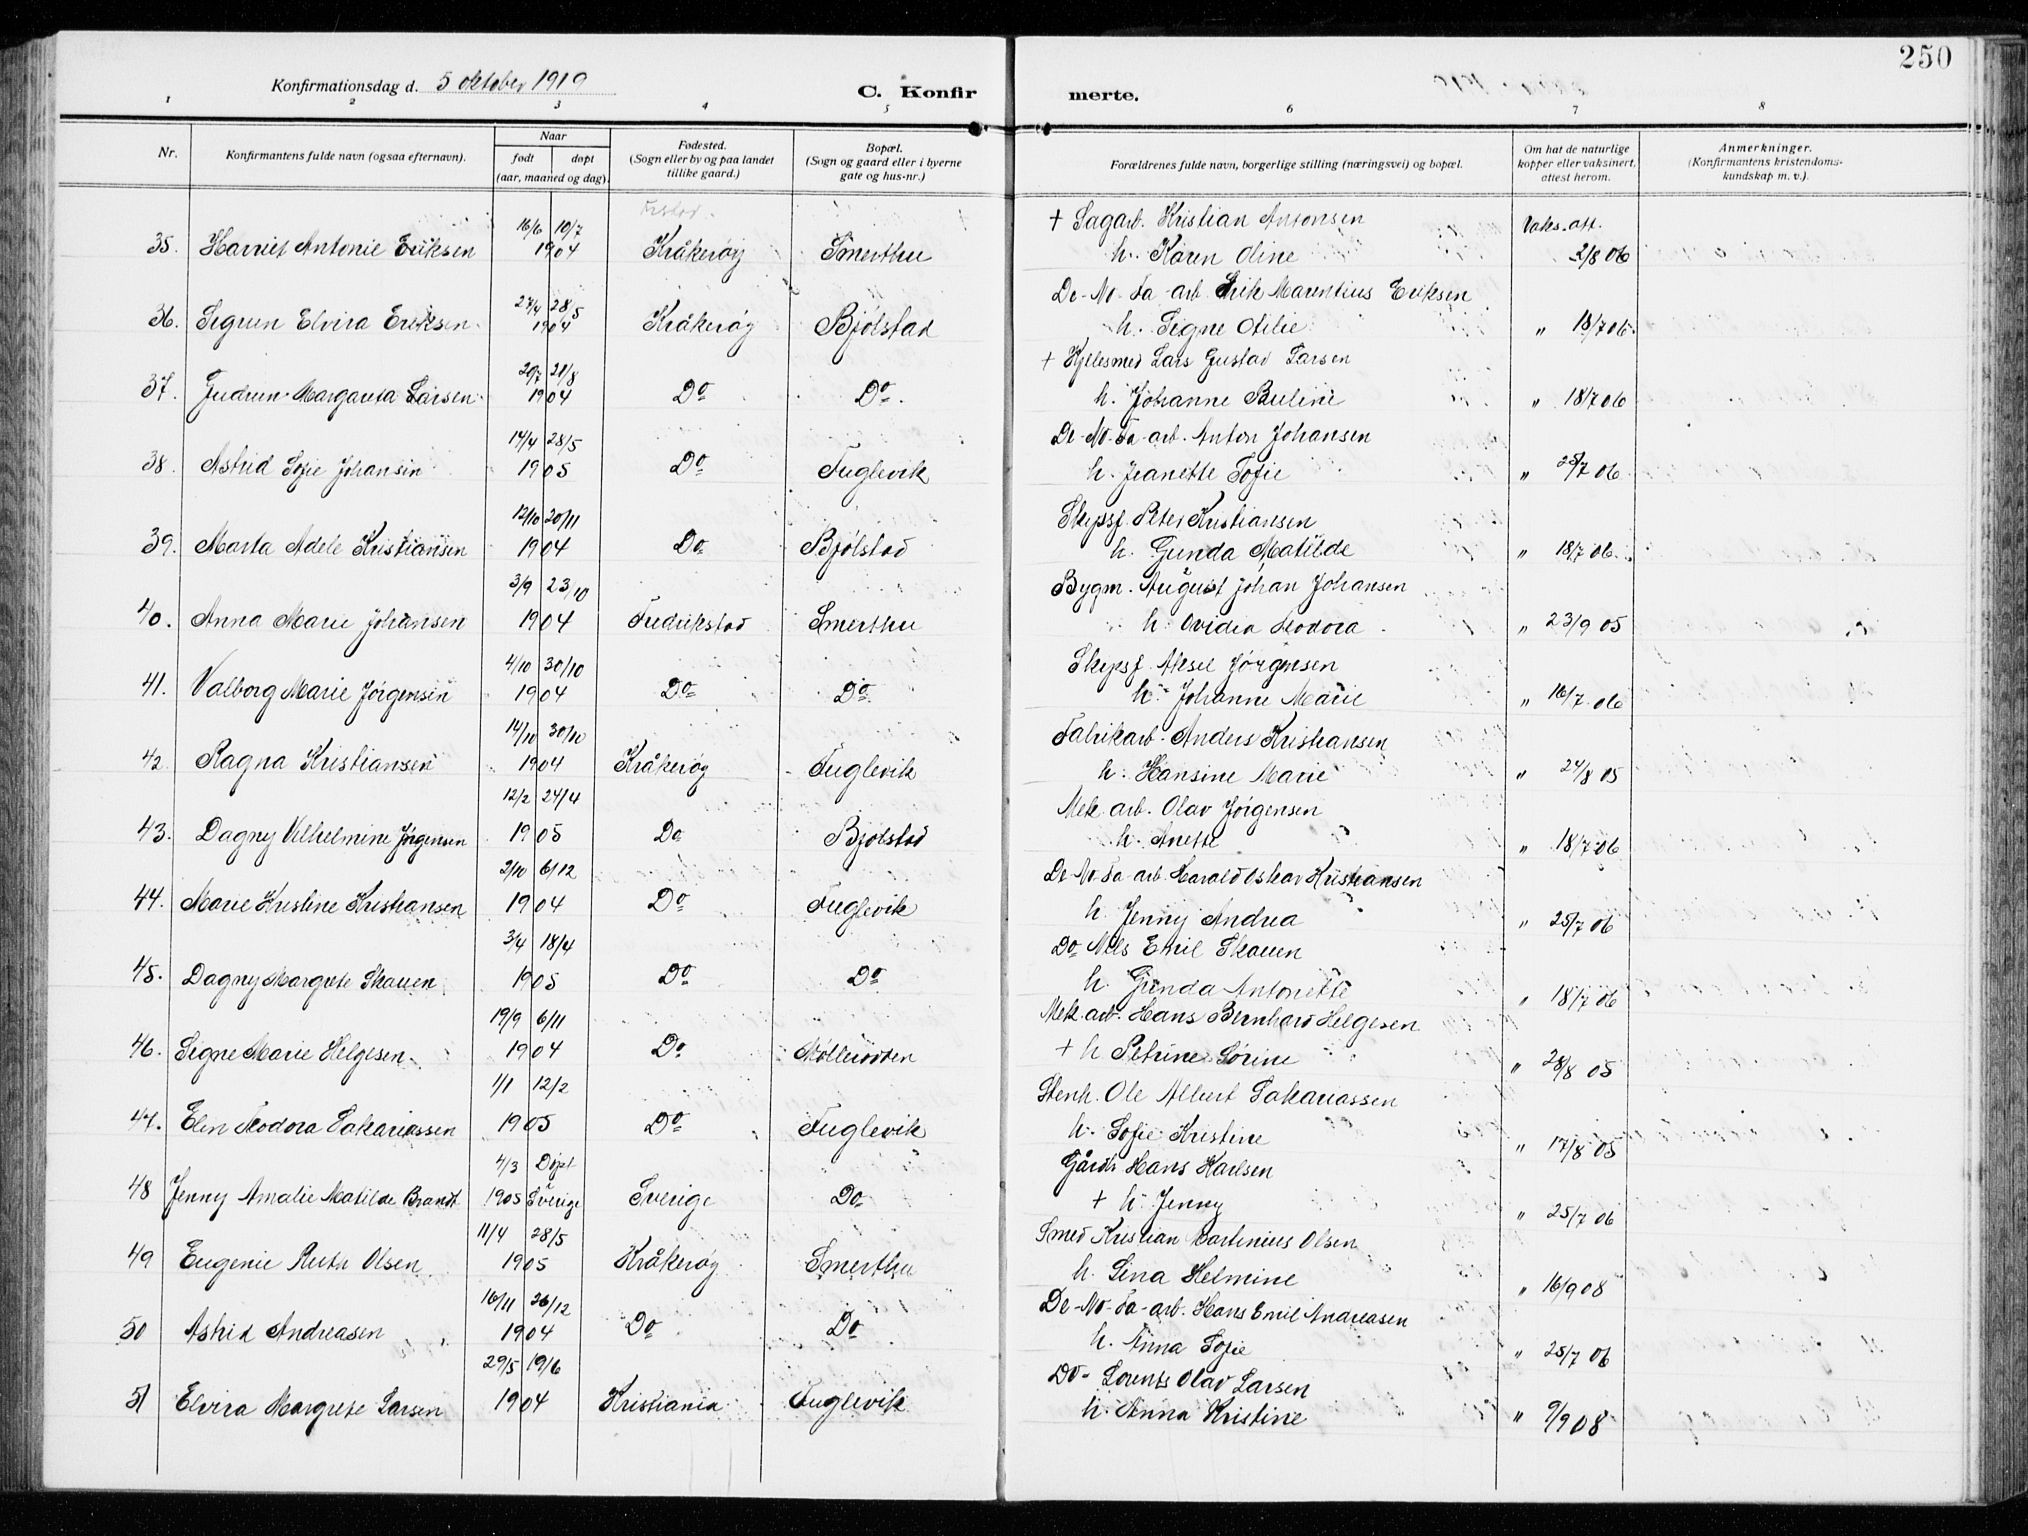 250
Konfirmationsdag d. 5 oktober 1919
C. Konfirmerte.
1 2 3 4 5 6 7 8
Nr.
Konfirmantens fulde navn (ogsaa efternavn).
Naar
født døpt
(aar, maaned og dag).
Fødested.
(Sogn eller by og paa landet
tillike gaard.)
Bopæl.
(Sogn og gaard eller i byerne
gate og hus-nr.)
Forældrenes fulde navn, borgerlige stilling (næringsvei) og bopæl.
Om hat de naturlige
kopper eller vaksinert,
attest herom.
Anmerkninger.
(Konfirmantens kristendoms-
kundskap m. v.).
16/6 10/7 + Sagarb. Kristian Antonsen Vaks. att.
35. Harriet Antonie Eriksen 1904 Kråkerøy Smerthu h. Karen Oline 2/8 06
27/4 28/5 De-No-Fa-arb Erik Marentius Eriksen
36. Sigrun Elvira Eriksen 1904 Kråkerøy Bjølstad h. Signe Otilie " 18/7 06
20/7 21/8 + Kjelesmed Lars Gustav Larsen
37. Gudrun Margareta Larsen 1904 Do Do h. Johanne Pauline " 18/7 06
14/4 28/5 De-No-Fa-arb. Anton Johansen
38. Astrid Sofie Johansen 1905 Do Fuglevik h. Jeanette Sofie " 25/7 06
12/10 20/11 Skipsf. Peter Kristiansen
39. Marta Adele Kristiansen 1904 Do Bjølstad h. Gunda Matilde " 18/7 06
3/9 23/10 Bygm. August Johan Johansen
40. Anna Marie Johansen 1904 Fredrikstad Smerthu h. Ovidia Teodora " 23/9 05
4/10 30/10 Skipsf. Aksel Jørgensen
41. Valborg Marie Jørgensen 1904 Do Do h. Johanne Marie " 16/7 06
14/10 30/10 Fabrikarb. Anders Kristiansen
42. Ragna Kristiansen 1904 Kråkerøy Fuglevik h. Hansine Marie " 24/8 05
12/2 24/4 Mek. arb. Olav Jørgensen
43. Dagny Vilhelmine Jørgensen 1905 Do Bjølstad h. Anette " 18/7 06
2/10 6/12 De-No-Fa-arb. Harald Oskar Kristiansen
44. Marie Kristine Kristiansen 1904 Do Fuglevik h. Jenny Andrea " 25/7 06
3/4 18/4 Do Nils Emil Skauen
45. Dagny Margrete Skauen 1905 Do Do h. Gunda Antonette " 18/7 06
19/9 6/11 Mek. arb. Hans Bernhard Helgesen
46. Signe Marie Helgesen 1904 Do Møllerodden + h Petrine Sørine " 28/8 05
1/1 12/2 Stenh. Ole Albert Sakariassen
47. Elin Teodora Sakariassen 1905 Do Fuglevik h. Sofie Kristine " 17/8 05
4/3 Døpt Gårdb Hans Karlsen
48 Jenny Amalie Matilde Brandt 1905 Sverige Sverige Do + h. Jenny " 25/7 06
11/4 28/5 Smed Kristian Martinius Olsen
49 Eugenie Ruth Olsen 1905 Kråkerøy Smerthu h. Lina Helmine " 16/9 08
16/11 26/12 De-No-Fa-arb. Hans Emil Andreasen
50 Astrid Andreasen 1904 Do Do h. Anna Sofie " 25/7 06
29/5 19/6 Do- Lorents Olav Larsen
51 Elvira Margrete Larsen 1904 Kristiania Fuglevik h. Anna Kristine " 9/9 08